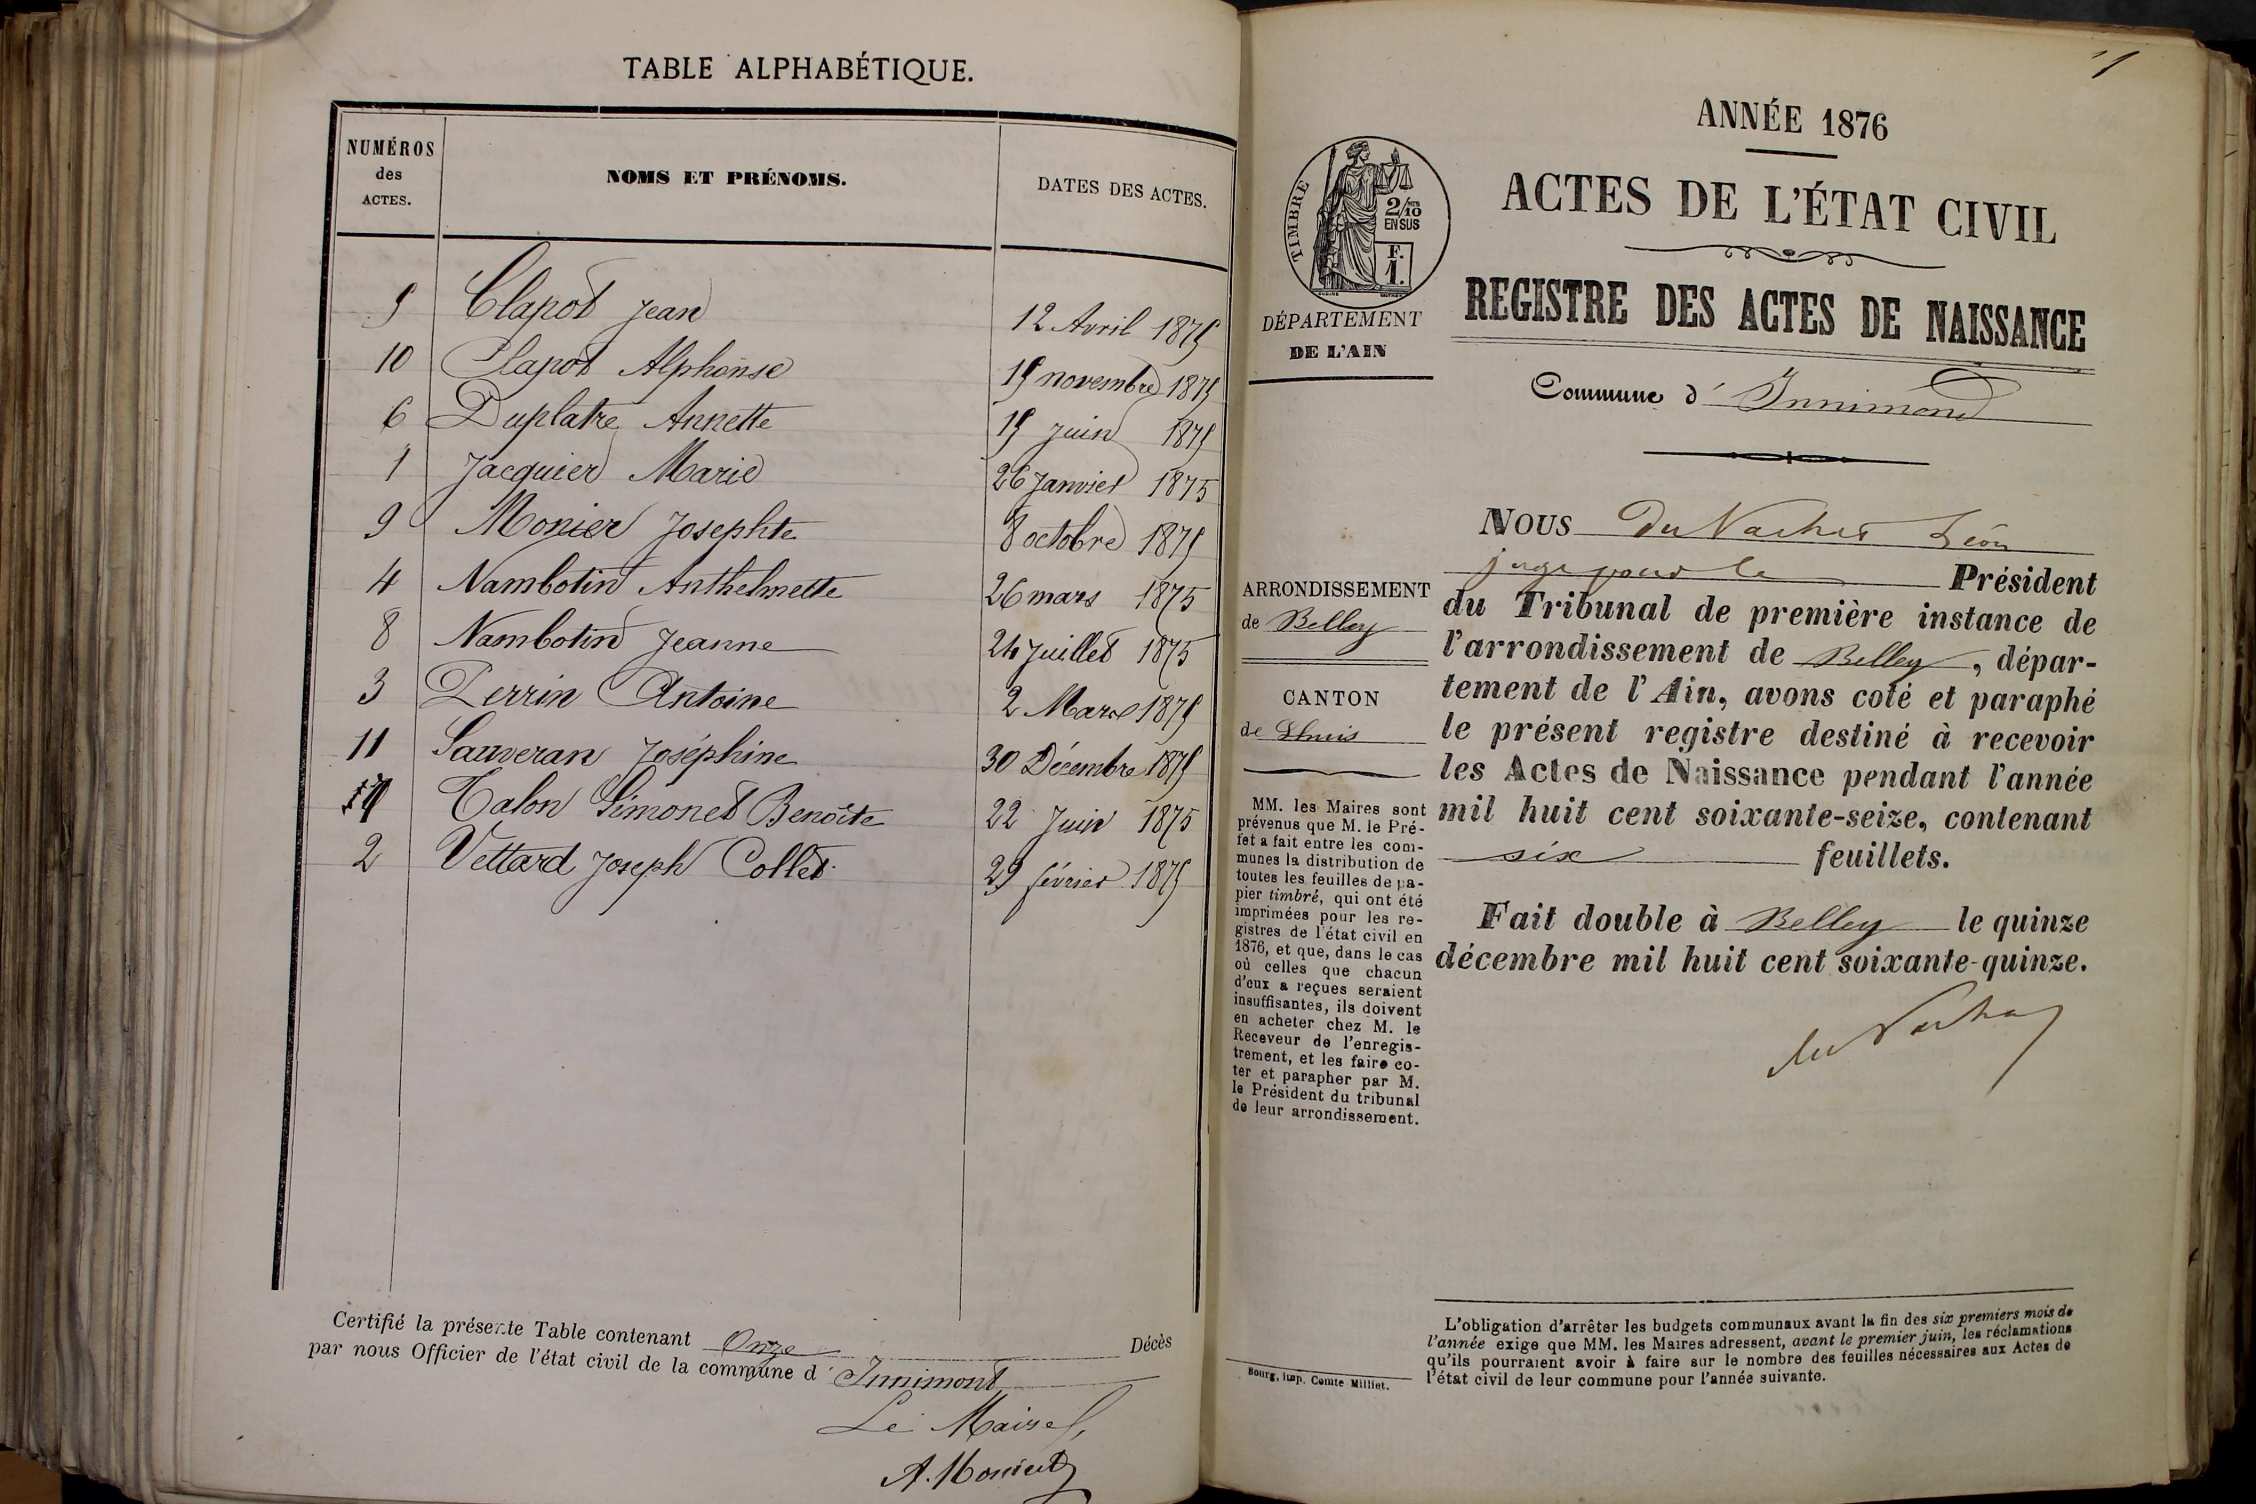 TABLE ALPHABÉTIQUE.
NUMÉROS des ACTES. NOMS ET PRÉNOMS. DATES DES ACTES.
5 Clapot Jean 12 Avril 1875
10 Clapot Alphonse 15 novembre 1875
6 Duplatre Annette 15 juin 1875
1 Jacquier Marie 26 Janvier 1875
9 Monier Josephte 8 octobre 1875
4 Nambotin Anthelmette 26 mars 1875
8 Nambotin Jeanne 24 Juillet 1875
3 Perrin Antoine 2 Mars 1875
11 Sauveran Joséphine 30 Décembre 1875
Talon Simonet Benoîte 22 Juin 1875
2 Vettard Joseph Collet 29 février 1875
Certifié la présente Table contenant Onze Décès
par nous Officier de l'état civil de la commune d'Innimont
Le Maire,
A. Monier
1
ANNÉE 1876
ACTES DE L'ÉTAT CIVIL
REGISTRE DES ACTES DE NAISSANCE
TIMBRE
2/10
EN SUS
F.
1.
DÉPARTEMENT
DE L'AIN
Commune d'Innimond
ARRONDISSEMENT
de Belley
CANTON
de Lhuis
MM. les Maires sont
prévenus que M. le Pré-
fet a fait entre les com-
munes la distribution de
toutes les feuilles de pa-
pier timbré, qui ont été
imprimées pour les re-
gistres de l'état civil en
1876, et que, dans le cas
où celles que chacun
d'eux a reçues seraient
insuffisantes, ils doivent
en acheter chez M. le
Receveur de l'enregis-
trement, et les faire co-
ter et parapher par M.
le Président du tribunal
de leur arrondissement.
NOUS du Nachet Léon
juge pour le Président
du Tribunal de première instance de
l'arrondissement de Belley, dépar-
tement de l'Ain, avons coté et paraphé
le présent registre destiné à recevoir
les Actes de Naissance pendant l'année
mil huit cent soixante-seize, contenant
six feuillets.
Fait double à Belley le quinze
décembre mil huit cent soixante-quinze.
L'obligation d'arrêter les budgets communaux avant la fin des six premiers mois de
l'année exige que MM. les Maires adressent, avant le premier juin, les réclamations
qu'ils pourraient avoir à faire sur le nombre des feuilles nécessaires aux Actes de
l'état civil de leur commune pour l'année suivante.
Bourg, imp. Comte Milliet.